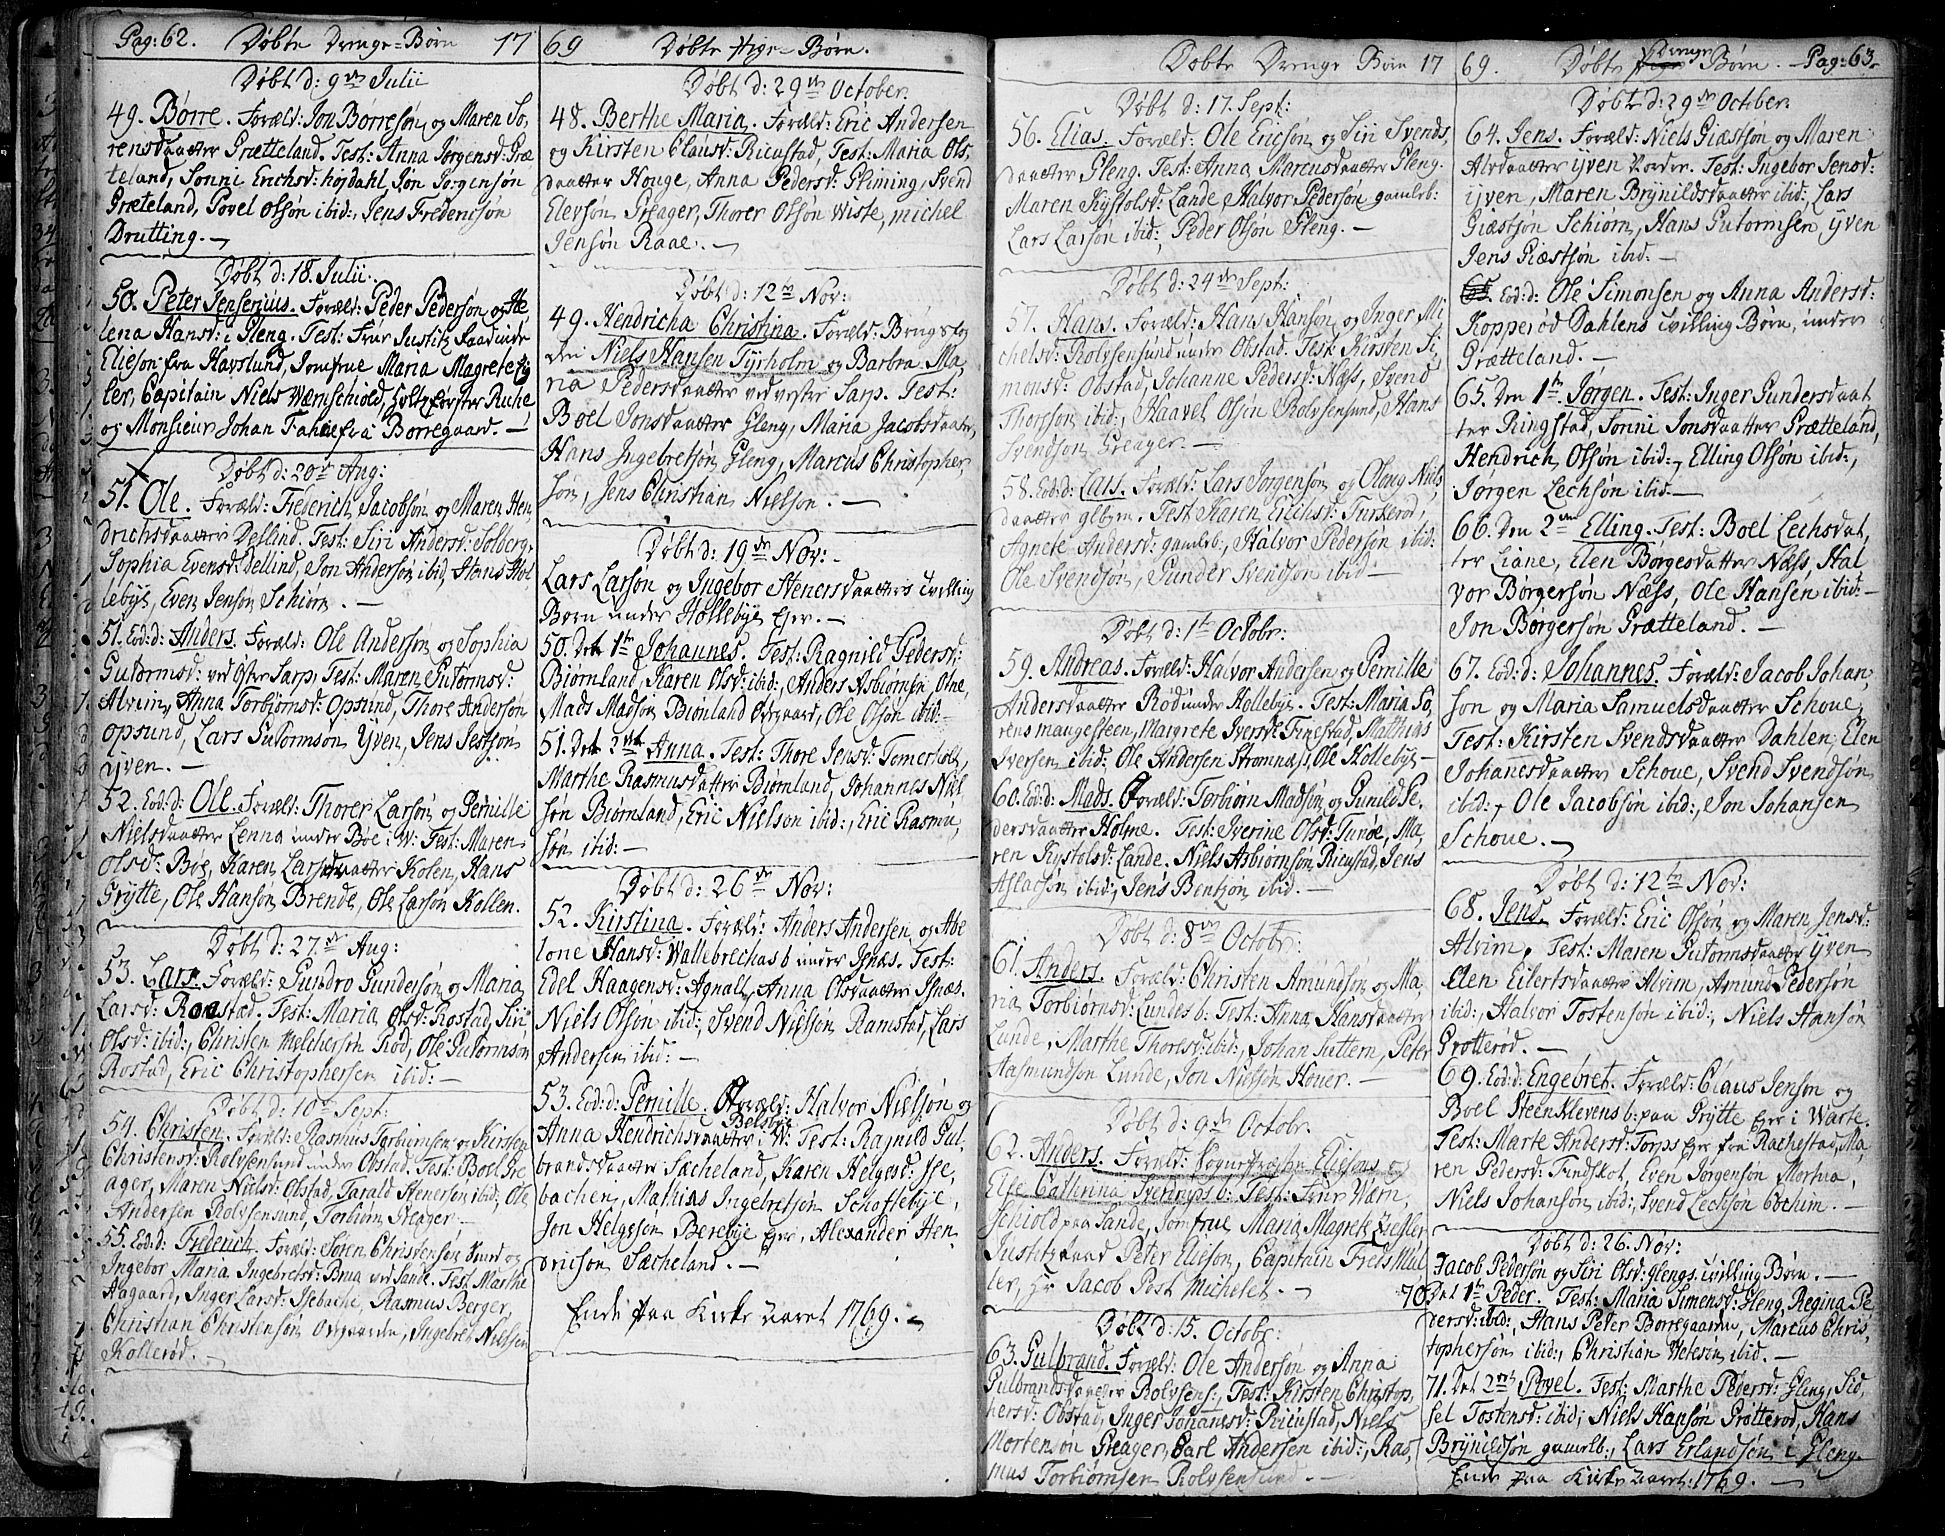 Pag: 62. Døbte Drenge-Børn 17
Døbt d: 9de Julii
49. Børre. Foræld: Jon Børresøn og Maren Sø-
rensdaatter Grætteland. Test: Anna Jørgensd: Græ-
teland, Sonni Erichsd: højdahl, Jøn Jørgensøn
Græteland, Povel Olsøn ibid:, Jens Frederichsøn
Drutting.
Døbt d: 18. Julii.
50. Peter Jenserjus. Foræld: Peder Pedersøn og He-
lena Hansd: i Gleng. Test: Frue Justitz Raadinde
Elieson fra Hafslund, Jomfrue Maria Magrete
ler, Capitain Niels Wærnschiold, Holtzførster Ruhe
og Monsieur Johan Fahne fra Borregaard.
Døbt d: 20de Aug:
51. Ole. Foræld: Frederich Jacobsøn og Maren Hen-
drichsdaatter Desslind. Test: Siri Andersd: Solberg,
Sophia Evensd: dellind, Jon Andersøn ibid, Hans Hol-
lebye, Even Jensøn Schiørn.
51. Eod: d: Anders. Foræld: Ole Andersøn og Sophia
Gutormsd: ved Øster Sarp. Test: Maren Gutormsd:
Alvim, Anna Torbiørnsd: Opsund, Thore Andersøn
opsund, Lars Gutormsøn Yven, Jens Jestsøn
ijven.
52. Eod: d: Ole. Foræld: Thorer Larsøn og Pernille
Nielsdaatter Lenna under Bøe i W: Test: Maren
Olsd: Boe, Karen Larsdaatter Kolen, Hans
Grytte, Ole Hansøn Brende, Ole Larsøn Kollen.
Døbt d: 27de Aug:
53. Lars. Foræld: Gundro Gundersøn og Maria
Larsd: Roestad. Test: Maria Olsd: Rostad, Siri
Olsd: ibid:, Christen Melchersøn Rød, Ole Gutormsøn
Rostad, Eric Christophersen ibid:
Døbt d: 10de Sept:
54. Christen. Foræld: Rasmus Torbiørnsen og Kirsten
Christensd: Rolvsensund under Obstad. Test: Boel Gre-
ager, Maren Nielsd: Olstad, Tarald Stenersen ibid, Ole
Andersen Rolvsensund, Torbiørn Greager
55. Eod: d: Frederich. Foræld: Søren Christensøn Sund og
Ingebor Maria Ingebretsd: Brua ved Sande. Test: Marthe
Aagaard, Inger Larsd: Isebache, Rasmus Berger,
Christian Christensøn Ovegaarden, Ingebret Nielsen
Kollerød.
69 Døbte Pige-Børn.
Døbt d: 29de October.
48. Berthe Maria. Foræld: Eric Andersen
og Kirsten Clausd: Ricustad, Test: Maria Ols-
daatter Houge, Anna Pedersd: Gliming, Svend
Elevsøn Greager, Thorer Olsøn Wiste, michel
Jensøn Raae.
Døbt d: 12te Nov:
49. Hendricha Christina. Foræld: Brugsfog
den Niels Hansen Tyrholm og Barbra Ma-
ria Pedersdaatter ved vester Sarp. Test:
Boel Jonsdaatter Gleng, Maria Jacobsdaatter,
Hans Ingebretsøn Gleng, Marcus Christopher-
søn, Jens Christian Nielsøn.
Døbt d: 19de Nov:
Lars Larsøn og Ingebor Stenersdaatters tvilling
Børn under Hollebye Ejer.
50. Det 1te Johannes. Test: Ragnild Pedersd:
Biørnland, Karen Olsd: ibid:, Anders Asbiørnsen Olne,
Mads Madsøn Biørnland Ovegaard, Ole Olsøn ibid:
51. Det 2det Anna. Test: Thore Jensd: Tomerholt,
Marthe Rasmusdatter Biørnland, Johannes Niel-
søn Biørnland, Eric Nielsøn ibid:, Eric Rasmu,
søn ibid:
Døbt d: 26de Nov:
52. Kirstina. Foræld: Anders Andersen og Abe-
lone Hansd: Wallebrechas b under Isnæs. Test:
Edel Haagensd: Agnalt, Anna Olsdaatter Isnæs.
Niels Olsøn ibid:, Svend Nielsøn Ramstad, Lars
Andersen ibid:
53. Eod: d: Pernille. Foræld: Halvor Nielsøn og
Anna Hendrichsdaatter Belsbye i W: Test: Ragnild Gul-
brandsdaatter Sæcheland, Karen Helgesd: Ise-
bachen, Mathias Ingebretsøn Schoftebye,
Jon Helgesøn Berebye Ejer, Alexander Hen-
drichsøn Sæcheland.
Ende paa Kirke Aaret 1769.
Døbte Drenge Børn 17
Døbt d: 17. Sept:
56. Elias. Foræld: Ole Ericsøn og Siri Svends
daatter Gleng. Test: Anna Marcusdaatter Gleng.
Maren Kystolsd: Lande, Halvor Pedersøn gamleb:
Lars Larsøn ibid:, Peder Olsøn Gleng.
Døbt d: 24de Sept:
57. Hans. Foræld: Hans Hansøn og Inger Mi-
chelsd: Rolvsensund under Obstad. Test: Kirsten Si-
monsd: Obstad, Johanne Pedersd: Næss, Svend
Thorsson ibid:, Haavel Olsøn Rolvsensund, Hans
Svendsøn Greager.
58. Eod: d: Lars. Foræld: Lars Jørgensøn og Oloug Niels
daatter glbyen. Test: Karen Erichsd: Turkerød,
Agnete Andersd: gamleb:, Halvor Pedersøn ibid:
Ole Svendsøn, Gunder Svendsøn ibid
Døbt d: 1te Octobr:
59. Andreas. Foræld: Halvor Andersen og Pernille
Andersdaatter Rød under Hollebye. Test: Maria Sø-
rens maugesteen, Margrete Iversd: Finestad, Mathias
Iversen ibid: Ole Andersen Strømnæss, Ole Hollebye
60. Eod: d: Mads. Foræld: Torbiørn Madsøn og Gunild Pe-
dersdaatter Holme. Test: Iverine Olsd: Tunøe, Ma-
ren Kystolsd: Lande. Niels Asbiørnsøn Ricustad, Jens
Aslacsøn ibid:, Jens Bentzon ibid.
Døbt d: 8de Octobr:
61. Anders. Foræld: Christen Amundsøn og Ma-
ria Torbiørnsd: Lundes b: Test: Anna Hansdaatter
Lunde, Marthe Thoresd: ibid:, Johan Suttern, Peter
Aasmundsøn Lunde, Jon Nielsøn Houer.
Døbt d: 9de Octobr.
62. Anders. Foræld: Sognepræsten Eliesons og
Else Cathrina b: Test: Frue Wærn-
schiold paa Sande, Jomfrue Maria Magrete Ziegler
Justitzraad Peter Elieson, Capitain Freds Mül
ler, Hr Jacob Post Michelet.
Døbt d: 15. Octobr:
63. Gulbrand. Foræld: Ole Andersøn og Anna
Gulbrandsdaatter Rolvsens:, Test: Kirsten Christop-
hersd: Obstad, Inger Johanesd: Ricustad, Niels
Mortensøn Greager, Carl Andersen ibid:, Ras-
mus Torbiørnsen Rolvsensund.
69. Døbte Drenge Børn. Pag: 63.
Døbt d: 29de October.
64. Jens. Foræld: Niels Giæstsøn og Maren
Alvdaatter ijven Norder. Test: Ingebor Jensd:
ijven, Maren Brynildsdaatter ibid:, Lars
Giæstsøn Schiørn, Hans Gutormsen ijven
Jens Giæstsøn ibid:
Eod: d: Ole Simonsen og Anna Andersd:
Kopperød Dahlens tvilling Børn, under
Grætteland.
65. Den 1te Jørgen. Test: Inger Gundersdaat
ter Ringstad, Sonni Jonsdaatter Grætteland,
Hendrich Olsøn ibid:, Elling Olsøn ibid:,
Jørgen Lechsøn ibid.
66. Den 2den Elling. Test: Boel Lechsdat,
ter Liane, Elen Børgesdatter Næss, Hal
vor Børgersøn Næss, Ole Hansen ibid:
Jon Børgersøn Grætteland.
67. Eod: d: Johannes. Foræld: Jacob Johan-
søn og Maria Samuelsdaatter Schoue,
Test: Kirsten Svendsdaatter Dahlen, Elen
Johanesdaatter Schoue, Svend Svendsøn
ibid:, Ole Jacobsøn ibid:, Jon Johansen
Schoue.
Døbt d: 12te Nov:
68. Jens. Foræld: Eric Olsøn og Maren Jensd:
Alvim. Test: Maren Gutormsdaatter ijven
Elen Eilertsdaatter Alvim, Amund Pedersøn
ibid:, Halvor Tostensøn ibid:, Niels Hansøn
Grotterød.
69. Eod: d: Engebret. Foræld: Claus Jensøn og
Boel SteenKlevens b: paa Grytte Ejer i Warte.
Test: Marte Andersd: Torps Ejer fra Rachestad, Ma-
ren Pedersd: Findskot, Even Jørgensøn Morhua,
Niels Johansøn ibid:, Svend Lechsøn bochim.
Døbt d: 26. Nov:
Jacob Pedersøn og Siri Olsd: Glengs tvilling Børn.
70. Det 1te Peder. Test: Maria Simensd: Gleng, Regina Pe-
dersd: ibid:, Hans Peter Borregaarden, Marcus Chris-
tophersøn ibid:, Christian Petersøn ibid.
71. Det 2det Povel. Test: Marthe Pedersd: Gleng, Sid-
sel Tostensd: ibid:, Niels Hansøn Grotterød, Hans
Brynildsøn gamleb:, Lars Erlandsøn i Gleng.
Ende paa Kirke Aaret: 1769.